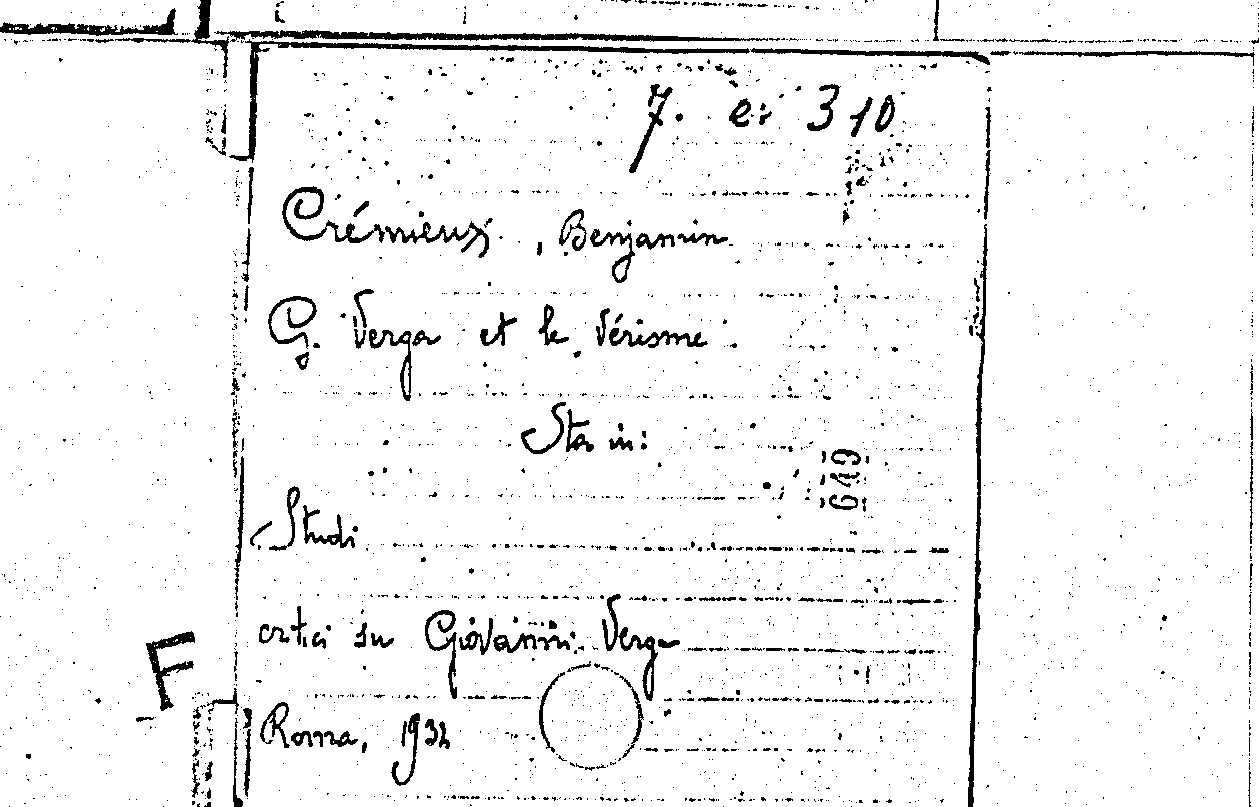 7. e. 310
Crémieux, Benjamin
G. Verga et le Vérisme.
Sta in:
649
Studi
critici su Giovanni Verga
F
Roma, 1932